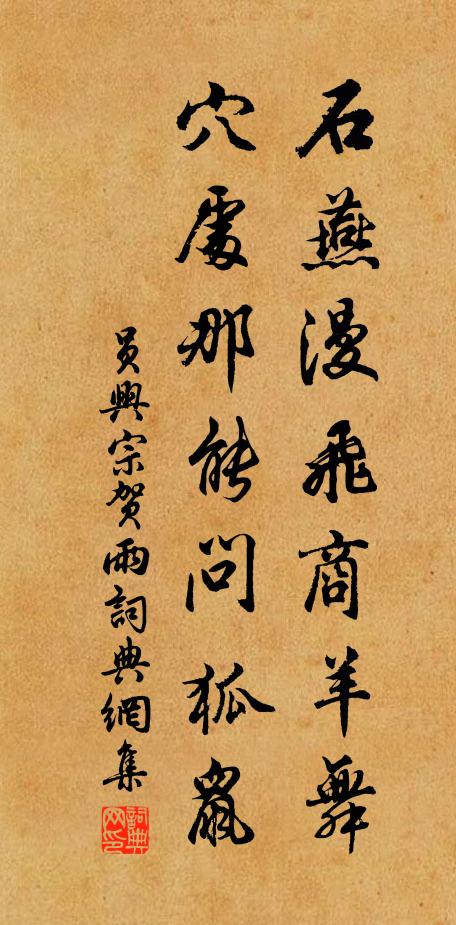 石燕漫飛商羊舞
穴處那能問狐鼠
員興宗賀雨詞典網集
詞典网印